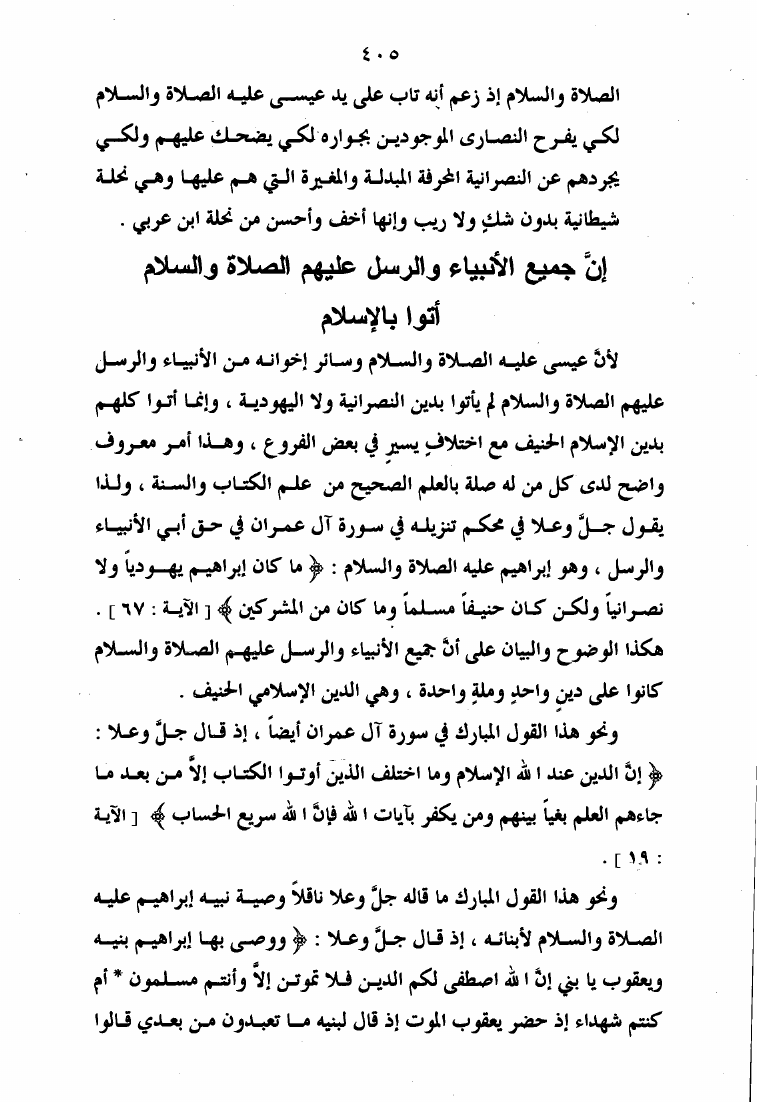 ٤٠٥
الصلاة والسلام إذ زعم أنه تاب على يد عيسى عليه الصلاة والسلام
لكي يفرح النصارى الموجودين بجواره لكي يضحك عليهم ولكي
يجردهم عن النصرانية المحرفة المبدلة والمغيرة التي هم عليها وهي نحلة
شيطانية بدون شكٍ ولا ريب وإنها أخف وأحسن من نحلة ابن عربي .
إنَّ جميع الأنبياء والرسل عليهم الصلاة والسلام
أتوا بالإسلام
لأنَّ عيسى عليه الصلاة والسلام وسائر إخوانه من الأنبياء والرسل
عليهم الصلاة والسلام لم يأتوا بدين النصرانية ولا اليهودية ، وإنما أتوا كلهم
بدين الإسلام الحنيف مع اختلافٍ يسيرٍ في بعض الفروع ، وهذا أمر معروف
واضح لدى كل من له صلة بالعلم الصحيح من علم الكتاب والسنة ، ولذا
يقول جلَّ وعلا في محكم تنزيله في سورة آل عمران في حق أبي الأنبياء
والرسل ، وهو إبراهيم عليه الصلاة والسلام : ﴿ ما كان إبراهيم يهودياً ولا
نصرانياً ولكن كان حنيفاً مسلماً وما كان من المشركين ﴾ [ الآية : ٦٧ ] .
هكذا الوضوح والبيان على أنَّ جميع الأنبياء والرسل عليهم الصلاة والسلام
كانوا على دينٍ واحدٍ وملةٍ واحدة ، وهي الدين الإسلامي الحنيف .
ونحو هذا القول المبارك في سورة آل عمران أيضاً ، إذ قال جلَّ وعلا :
﴿ إنَّ الدين عند الله الإسلام وما اختلف الذين أوتوا الكتاب إلاَّ من بعد ما
جاءهم العلم بغياً بينهم ومن يكفر بآيات الله فإنَّ الله سريع الحساب ﴾ [ الآية
: ١٩ ] .
ونحو هذا القول المبارك ما قاله جلَّ وعلا ناقلاً وصية نبيه إبراهيم عليه
الصلاة والسلام لأبنائه ، إذ قال جلَّ وعلا : ﴿ ووصى بها إبراهيم بنيه
ويعقوب يا بني إنَّ الله اصطفى لكم الدين فلا تموتن إلاَّ وأنتم مسلمون * أم
كنتم شهداء إذ حضر يعقوب الموت إذ قال لبنيه ما تعبدون من بعدي قالوا